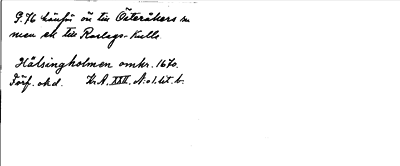 S. 76 hänför ön till Österåkers sn
men ek till Roslags-Kulla.
Hälsingholmen omkr. 1670.
Förf. okd. K.A. XXII. No 1. lit. b.